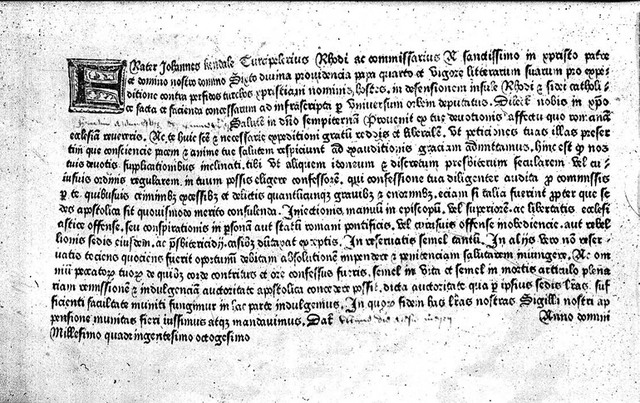 FRater Johannes kendale Turcipelerius Rhodi ac commissarius A sanctissimo in xpristo patre
et domino nostro domino Sixto divina providencia papa quarto et vigore litterarum suarum pro expe
ditione contra perfidos turchos xpristiani nominis hostes, in defensionem insule Rhodi & fidei catholi-
ce facta et facienda concessarum ad infrascripta p universum orbem deputatus. Dilect nobis in xpo
Salutē in dño sempiternā Provenit ex tue devotionis affectu quo romanā
ecclesiā revereris. Ac te huic sct & necessarie expeditioni gratū reddis et liberalē. Ut peticiones tuas illas preser
tim que consciencie pacem & anime tue salutem respiciunt ad exauditionis graciam admittamus. hinc est qp nos
tuis devotis supplicationibus inclinati, tibi ut aliquem idoneum & discretum presbiterum secularem vel cu
iusuis ordinis regularem, in tuum possis eligere confessorē. qui confessione tua diligenter audita p commissis
p te quibusuis criminibz excessibz et delictis quantūcunqz gravibz & enormibz, eciam si talia fuerint ppter que se
des apostolica sit quovismodo merito consulenda. Iniectionis manuū in episcopū. vel superiorē. ac libertatis eccles
iastice offense, seu conspirationis in psonā aut statū romani pontificis, vel cuiusuis offense inobediencie. aut rebel
lionis sedis eiusdem, ac psbitericidij, casibz exceptis. In reseruatis semel tantū. In alijs vero nō reser-
uatis tociens quociens fuerit oportunū debitam absolutionē impendere & penitenciam salutarem iniungere. Ac om
niū peccatorz tuorz de quibz corde contritus et ore confessus fueris, semel in vita et semel in mortis articulo plena
riam remissionē & indulgenciā auctoritate apostolica concedere possit. dicta auctoritate qua p ipsius sedis lras. suf
ficienti facultate muniti fungimur in hac parte indulgemus. In quorz fidem has lras nostras Sigilli nostri ap
pensione munitas fieri iussimus atqz mandavimus. Dat Anno domini
Millesimo quadringentesimo octogesimo